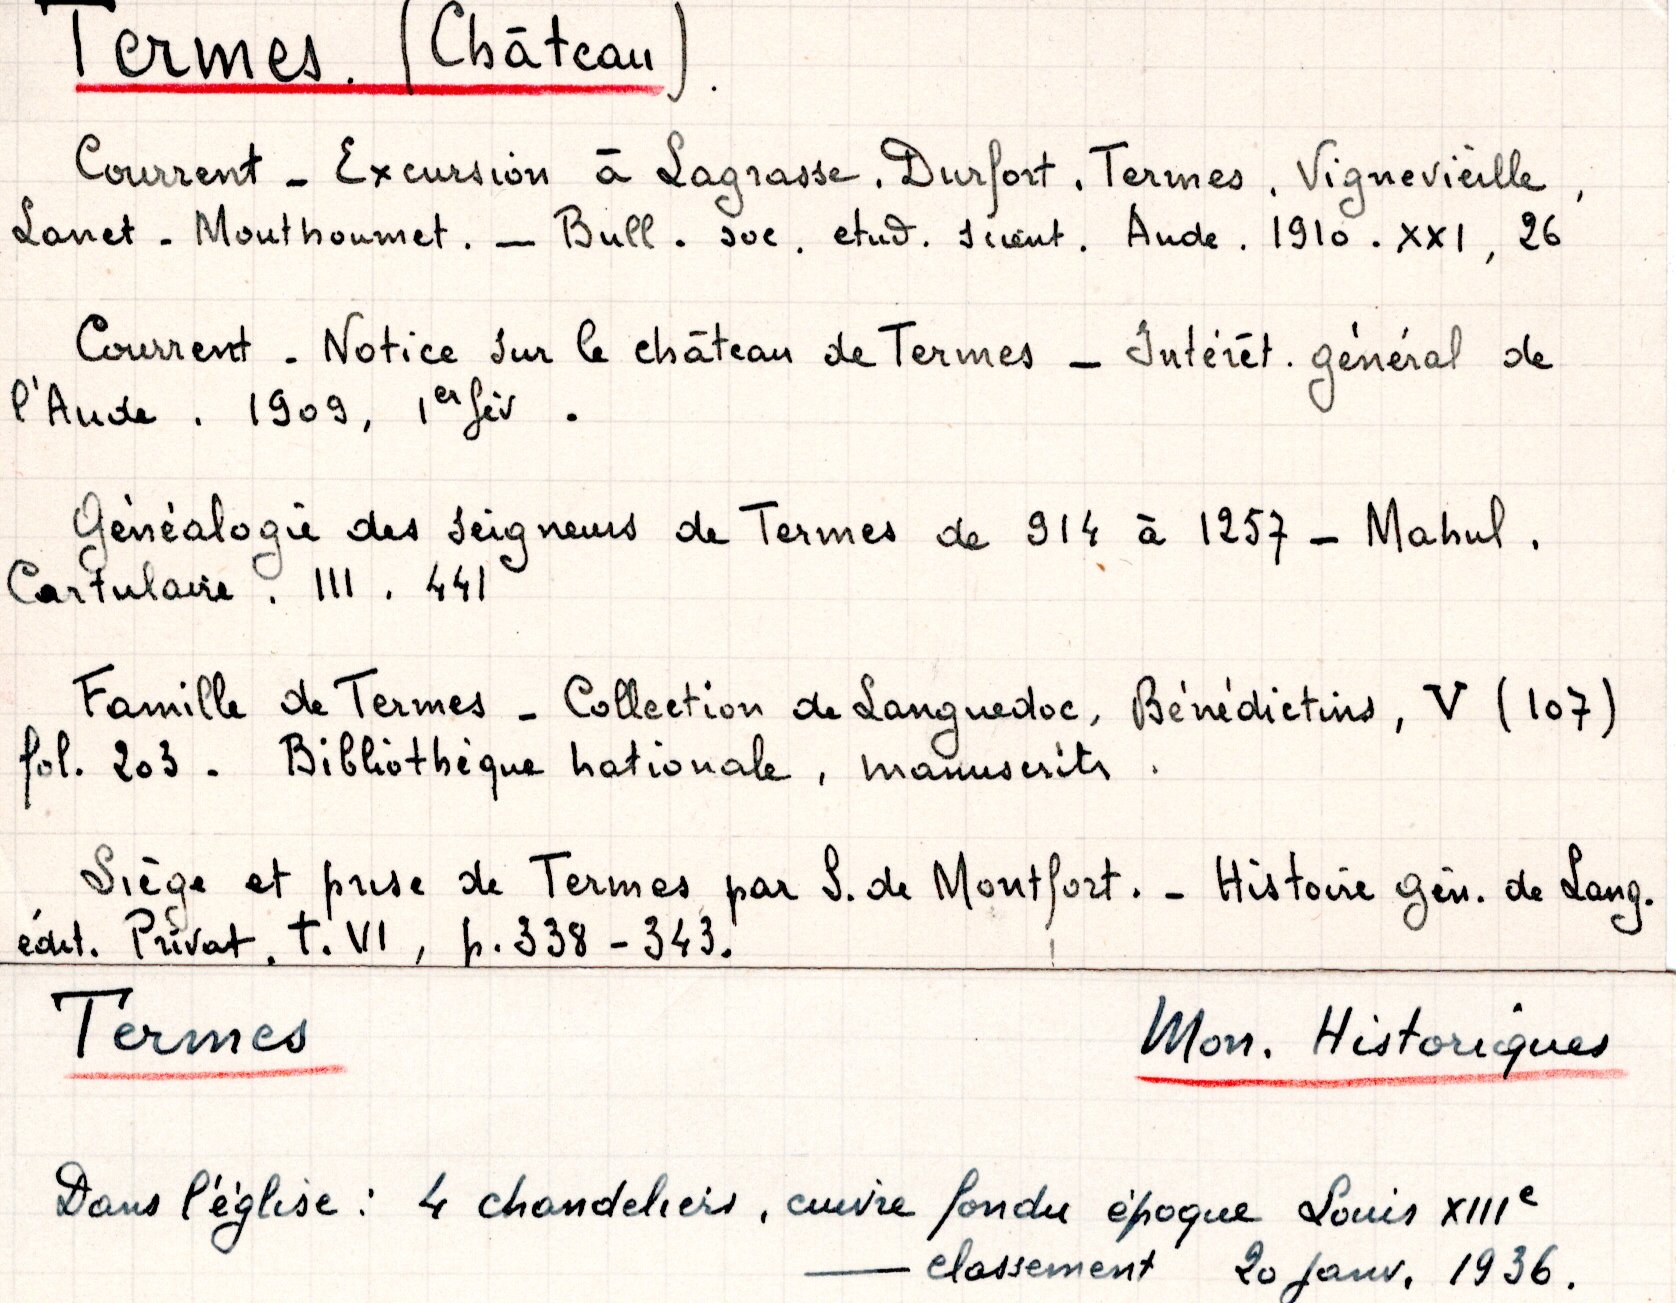 Termes. (Château).
Courrent - Excursion à Lagrasse. Durfort. Termes. Vignevieille,
Lanet - Mouthoumet. - Bull. soc. etud. scient. Aude. 1910. XXI, 26
Courrent - Notice sur le château de Termes - Intérêt. général de
l'Aude. 1909, 1er fév.
Généalogie des seigneurs de Termes de 914 à 1257 - Mahul.
Cartulaire. III. 441
Famille de Termes - Collection de Languedoc, Bénédictins, V (107)
fol. 203. Bibliothèque nationale, manuscrits.
Siège et prise de Termes par S. de Montfort. - Histoire gén. de Lang.
édit. Privat. t. VI, p. 338-343.
Termes Mon. Historiques
Dans l'église : 4 chandeliers, cuivre fondu époque Louis XIIIe
— classement 20 janv. 1936.